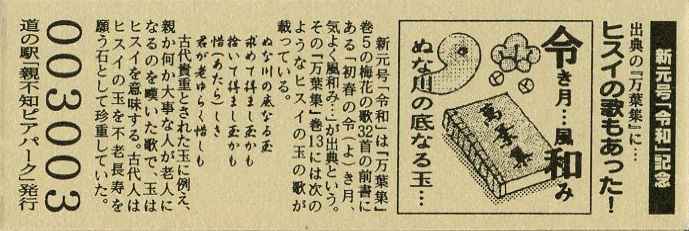 新元号「令和」記念
出典の『万葉集』に…
ヒスイの歌もあった！
令き月…風
和み
ぬな川の底なる玉…
萬葉集
新元号「令和」は『万葉集』
巻5の梅花の歌32首の前書に
ある「初春の令（よ）き月、
気よく風和み…」が出典という。
その『万葉集』巻13には次の
ようなヒスイの玉の歌が
載っている。
ぬな川の底なる玉
求めて得まし玉かも
拾いて得まし玉かも
惜（あたら）しき
君が老ゆらく惜しも
古代貴重とされた玉に例え、
親か何か大事な人が老人に
なるのを嘆いた歌で、玉は
ヒスイを意味する。古代人は
ヒスイの玉を不老長寿を
願う石として珍重していた。
003003
道の駅「親不知ピアパーク」発行